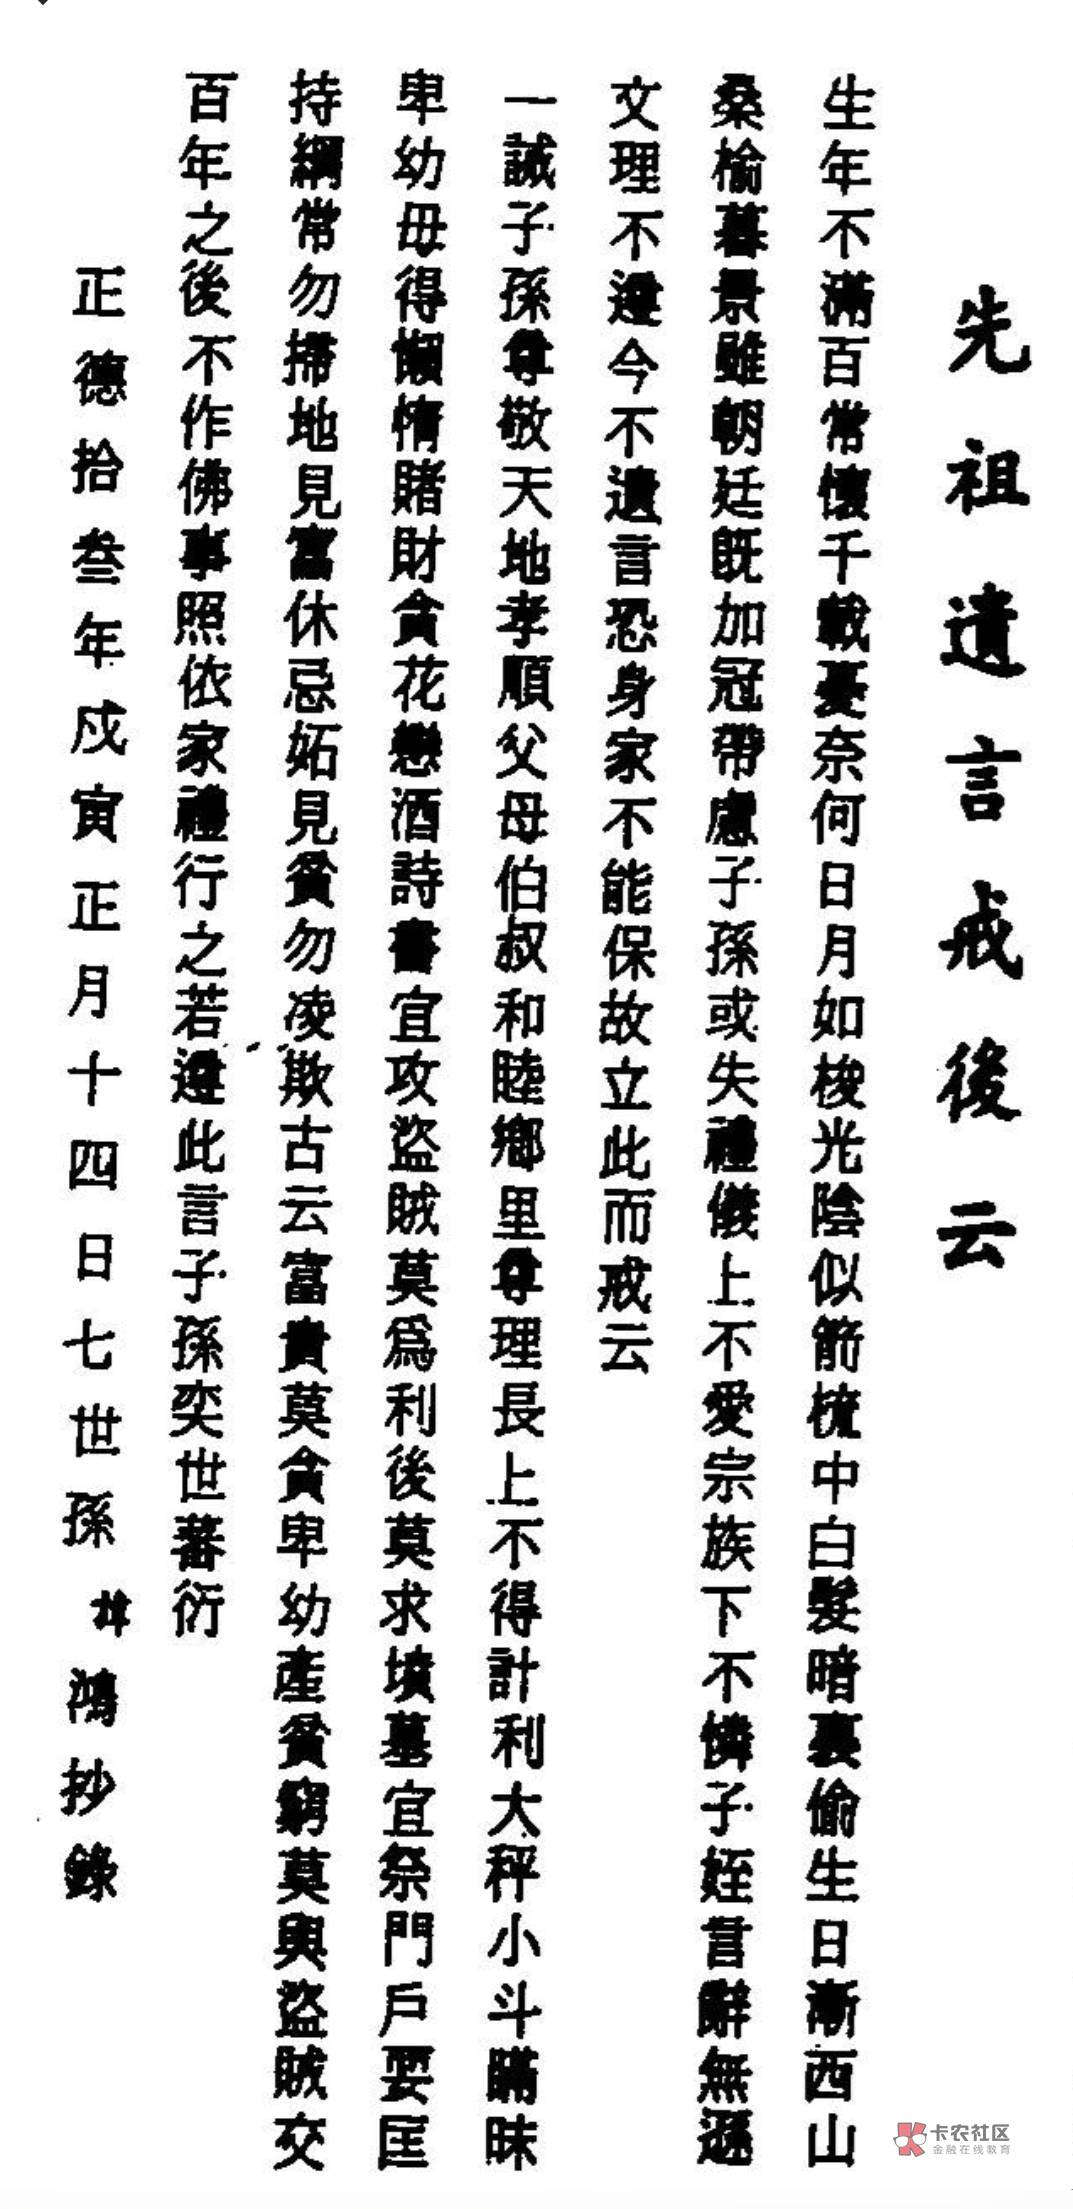 先祖遺言戒後云
生年不滿百常懷千載憂奈何日月如梭光陰似箭梳中白髮暗裏偷生日漸西山
桑榆暮景雖朝廷既加冠帶慮子孫或失禮儀上不愛宗族下不憐子姪言辭無遜
文理不遵今不遺言恐身家不能保故立此而戒云
一誡子孫尊敬天地孝順父母伯叔和睦鄉里尊理長上不得計利大秤小斗瞞昧
卑幼毋得懶惰賭財貪花戀酒詩書宜攻盜賊莫爲利後莫求墳墓宜祭門戶要匡
持綱常勿掃地見富休忌妬見貧勿凌欺古云富貴莫貪卑幼產貧窮莫與盜賊交
百年之後不作佛事照依家禮行之若遵此言子孫奕世蕃衍
正德拾叁年戊寅正月十四日七世孫鴻抄錄
卡农社区
金融在线教育